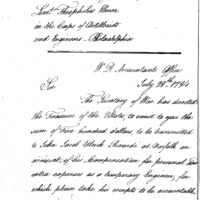 Lieut. Theophilus Elmer
in the Corps of Artillerists
and Engineers - Philadelphia
W. D. Accountants Office
July 28th 1794
Sir
The Secretary of War has directed
the Treasurer of the States to remit to you the
sum of Five hundred dollars to be transmitted
to John Jacob Ulrich Rivardi at Norfolk on
account of his Compensation for personal and
extra expenses as a temporary Engineer, for
which please take his receipts to be accountable.